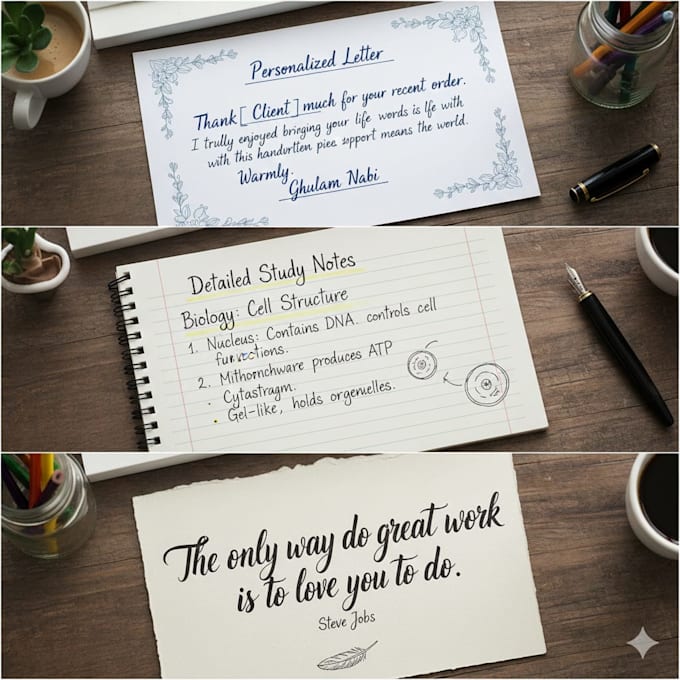 Personalized Letter
Thank [ Client ] much for your recent order.
I trully enjoyed bringing your life words is lfe with
with this handvrtten piee. sopport means the world.
Warmly.
Ghulam Nabi
Detailed Study Notes
Biology: Cell Structure
1. Nucleus: Contains DNA. controls cell
2. Mithornchware produces ATP
• Cytastragm.
• Gel-like, holds orgenielles.
The only way do great work
is to love you to do.
Steve Jobs